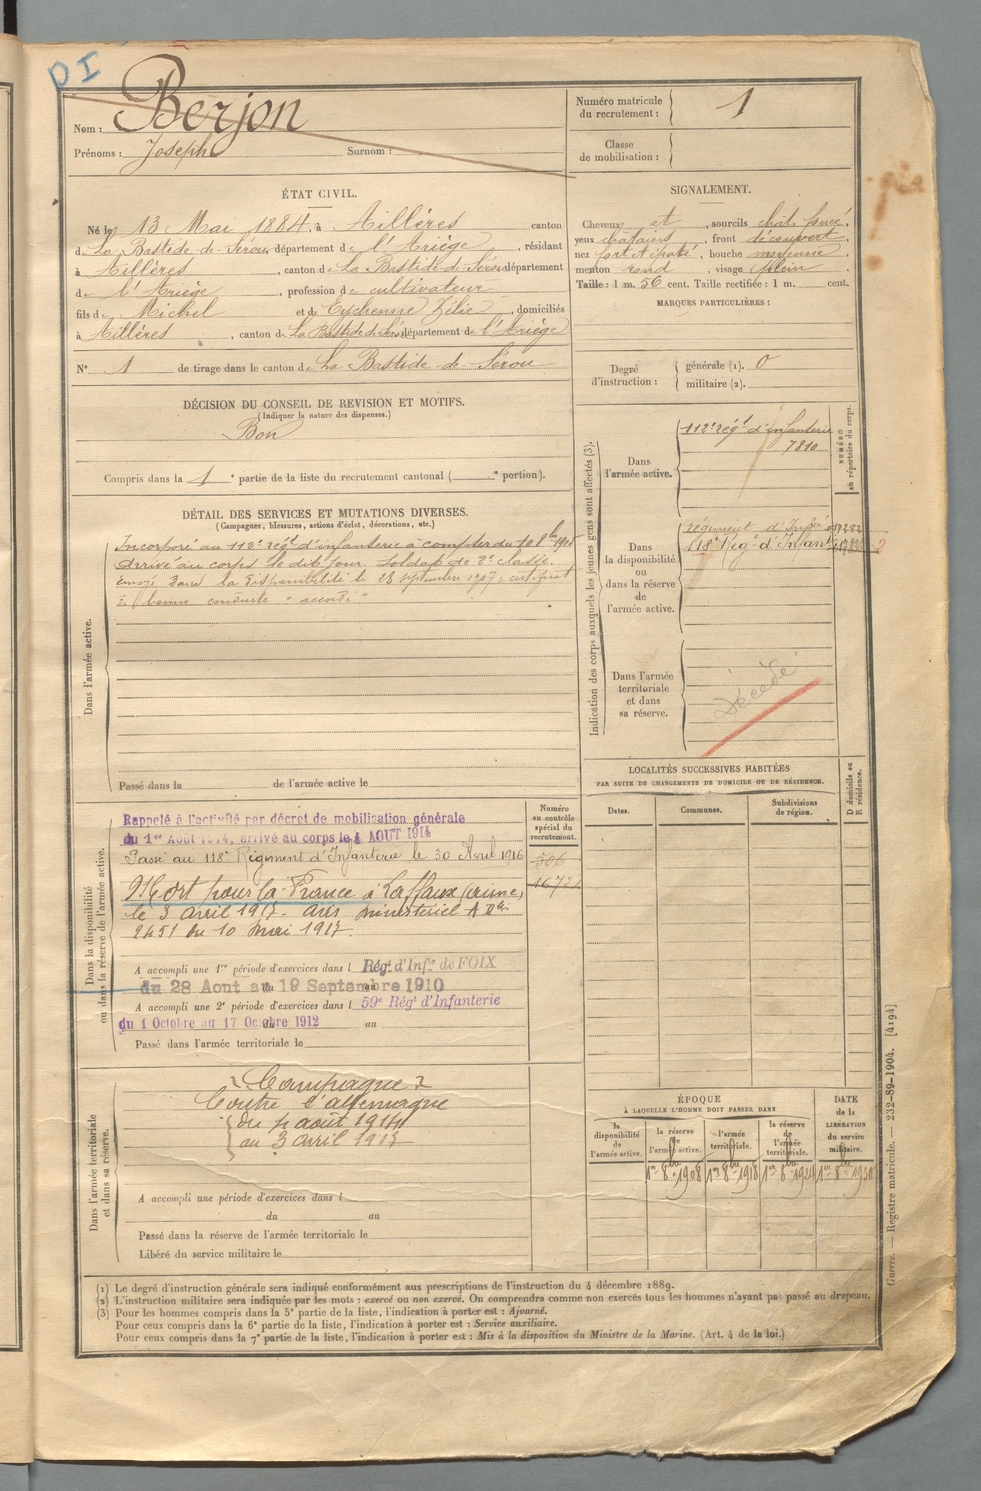 DI
Nom : Berjon
Prénoms : Joseph Surnom :
Numéro matricule du recrutement : 1
Classe de mobilisation :
ÉTAT CIVIL.
Né le 13 Mai 1884, à Aillères canton
de La Bastide-de-Sérou, département de l'Ariège, résidant
à Aillères, canton de La Bastide-de-Sérou département
de l'Ariège, profession de cultivateur
fils de Michel et de Eychenne Zélie, domiciliés
à Aillères, canton de La Bastide de Sérou département de l'Ariège
N° 1 de tirage dans le canton de La Bastide-de-Sérou
SIGNALEMENT.
Cheveux et, sourcils chât. foncé,
yeux châtains, front découvert,
nez fort et épaté, bouche moyenne
menton rond, visage plein
Taille : 1 m. 56 cent. Taille rectifiée : 1 m. cent.
MARQUES PARTICULIÈRES :
Degré d'instruction : générale (1). 0
militaire (2).
DÉCISION DU CONSEIL DE REVISION ET MOTIFS.
(Indiquer la nature des dispenses.)
Bon
Compris dans la 1e partie de la liste du recrutement cantonal ( e portion).
DÉTAIL DES SERVICES ET MUTATIONS DIVERSES.
(Campagnes, blessures, actions d'éclat, décorations, etc.)
Dans l'armée active.
Incorporé au 112e régt d'infanterie à compter du 10 8bre 1905
Arrivé au corps le dit jour. Soldat de 2e classe.
Envoyé dans la disponibilité le 28 septembre 1907 : certificat
de bonne conduite "accordé"
Passé dans la de l'armée active le
Indication des corps auxquels les jeunes gens sont affectés (3).
NUMÉRO au répertoire du corps.
Dans l'armée active.
112e régt d'infanterie
7810
Dans la disponibilité ou dans la réserve de l'armée active.
régiment d'Infie
118e Régt d'Infant
Dans l'armée territoriale et dans sa réserve.
Décédé
LOCALITÉS SUCCESSIVES HABITÉES
PAR SUITE DE CHANGEMENTS DE DOMICILE OU DE RÉSIDENCE.
Dates.
Communes.
Subdivisions de région.
D domicile ou R résidence.
Dans la disponibilité ou dans la réserve de l'armée active.
Numéro au contrôle spécial du recrutement.
Rappelé à l'activité par décret de mobilisation générale
du 1er Août 1914, arrivé au corps le 4 AOUT 1914
Passé au 118e Régiment d'Infanterie le 30 Avril 1916
306
Mort pour la France à Laffaux (aisne)
le 3 avril 1917. Avis ministériel
2451 du 10 mai 1917.
A accompli une 1re période d'exercices dans l Régt d'Infie de FOIX
du 28 Aout au 19 Septembre 1910
A accompli une 2e période d'exercices dans l 59e Régt d'Infanterie
du 1 Octobre au 17 Octobre 1912 au
Passé dans l'armée territoriale le
Dans l'armée territoriale et dans sa réserve.
Campagne
Contre l'allemagne
du 4 août 1914
au 3 avril 1917
A accompli une période d'exercices dans l
du au
Passé dans la réserve de l'armée territoriale le
Libéré du service militaire le
ÉPOQUE
À LAQUELLE L'HOMME DOIT PASSER DANS
la disponibilité de l'armée active.
la réserve de l'armée active.
l'armée territoriale.
la réserve de l'armée territoriale.
DATE de la LIBÉRATION du service militaire.
1er 8bre 1908
1er 8bre 1918
(1) Le degré d'instruction générale sera indiqué conformément aux prescriptions de l'instruction du 4 décembre 1889.
(2) L'instruction militaire sera indiquée par les mots : exercé ou non exercé. On comprendra comme non exercés tous les hommes n'ayant pas passé au drapeau.
(3) Pour les hommes compris dans la 5e partie de la liste, l'indication à porter est : Ajourné.
Pour ceux compris dans la 6e partie de la liste, l'indication à porter est : Service auxiliaire.
Pour ceux compris dans la 7e partie de la liste, l'indication à porter est : Mis à la disposition du Ministre de la Marine. (Art. 4 de la loi.)
Guerre. — Registre matricule. — 232-89-1904. [4194]